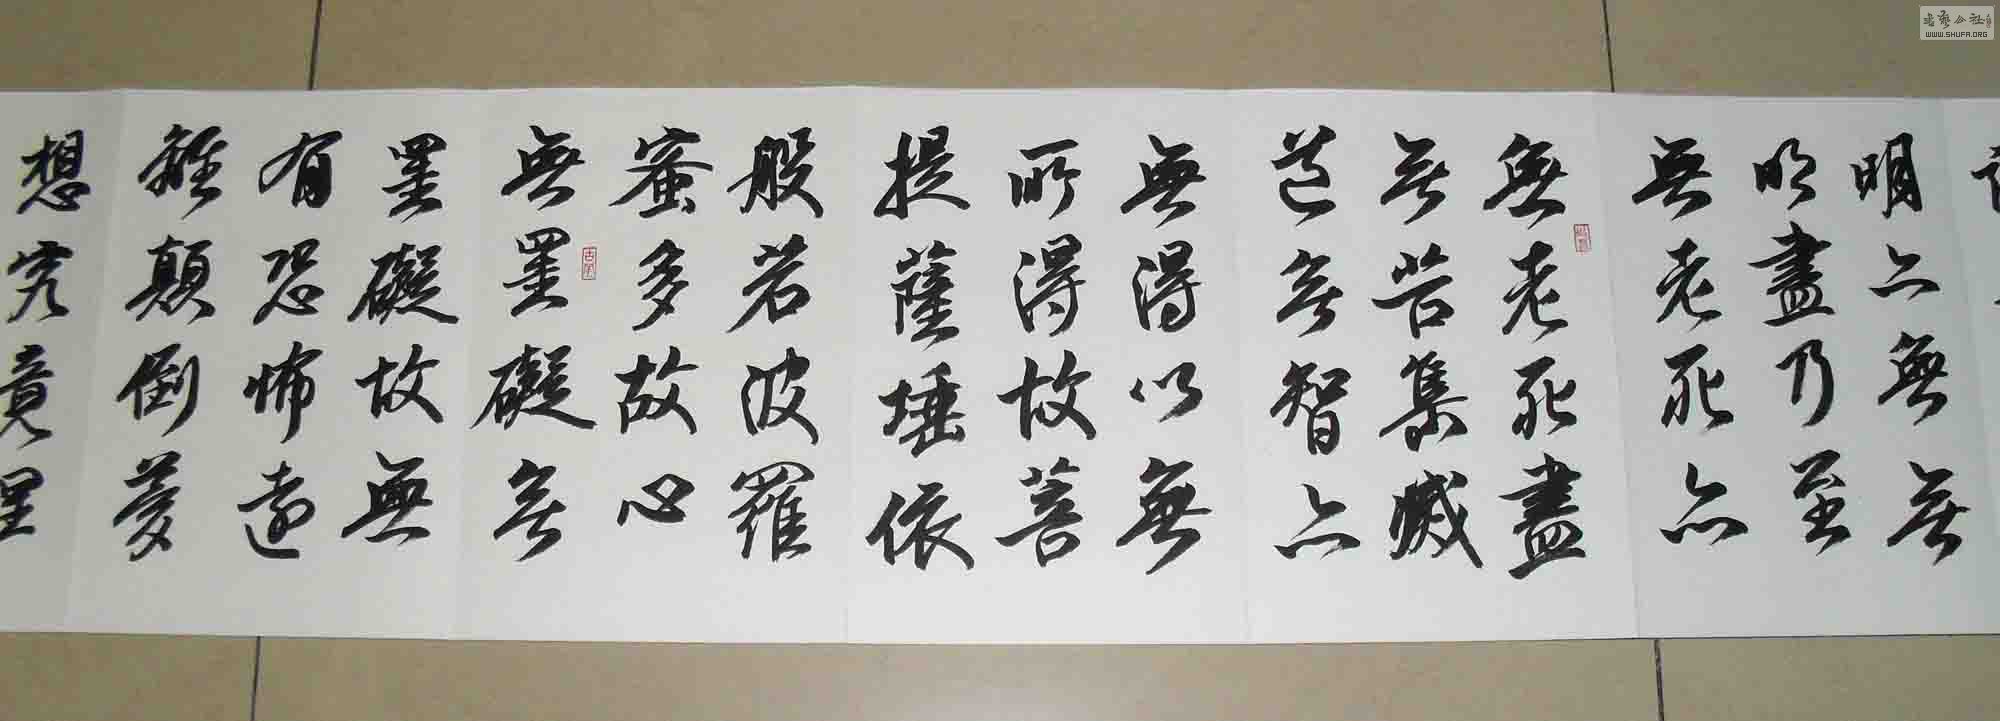 明亦無無
明盡乃至
無老死亦
無老死盡
無苦集滅
道無智亦
無得以無
所得故菩
提薩埵依
般若波羅
蜜多故心
無罣礙無
罣礙故無
有恐怖遠
離顛倒夢
想究竟涅
書藝公社
WWW.SHUFA.ORG